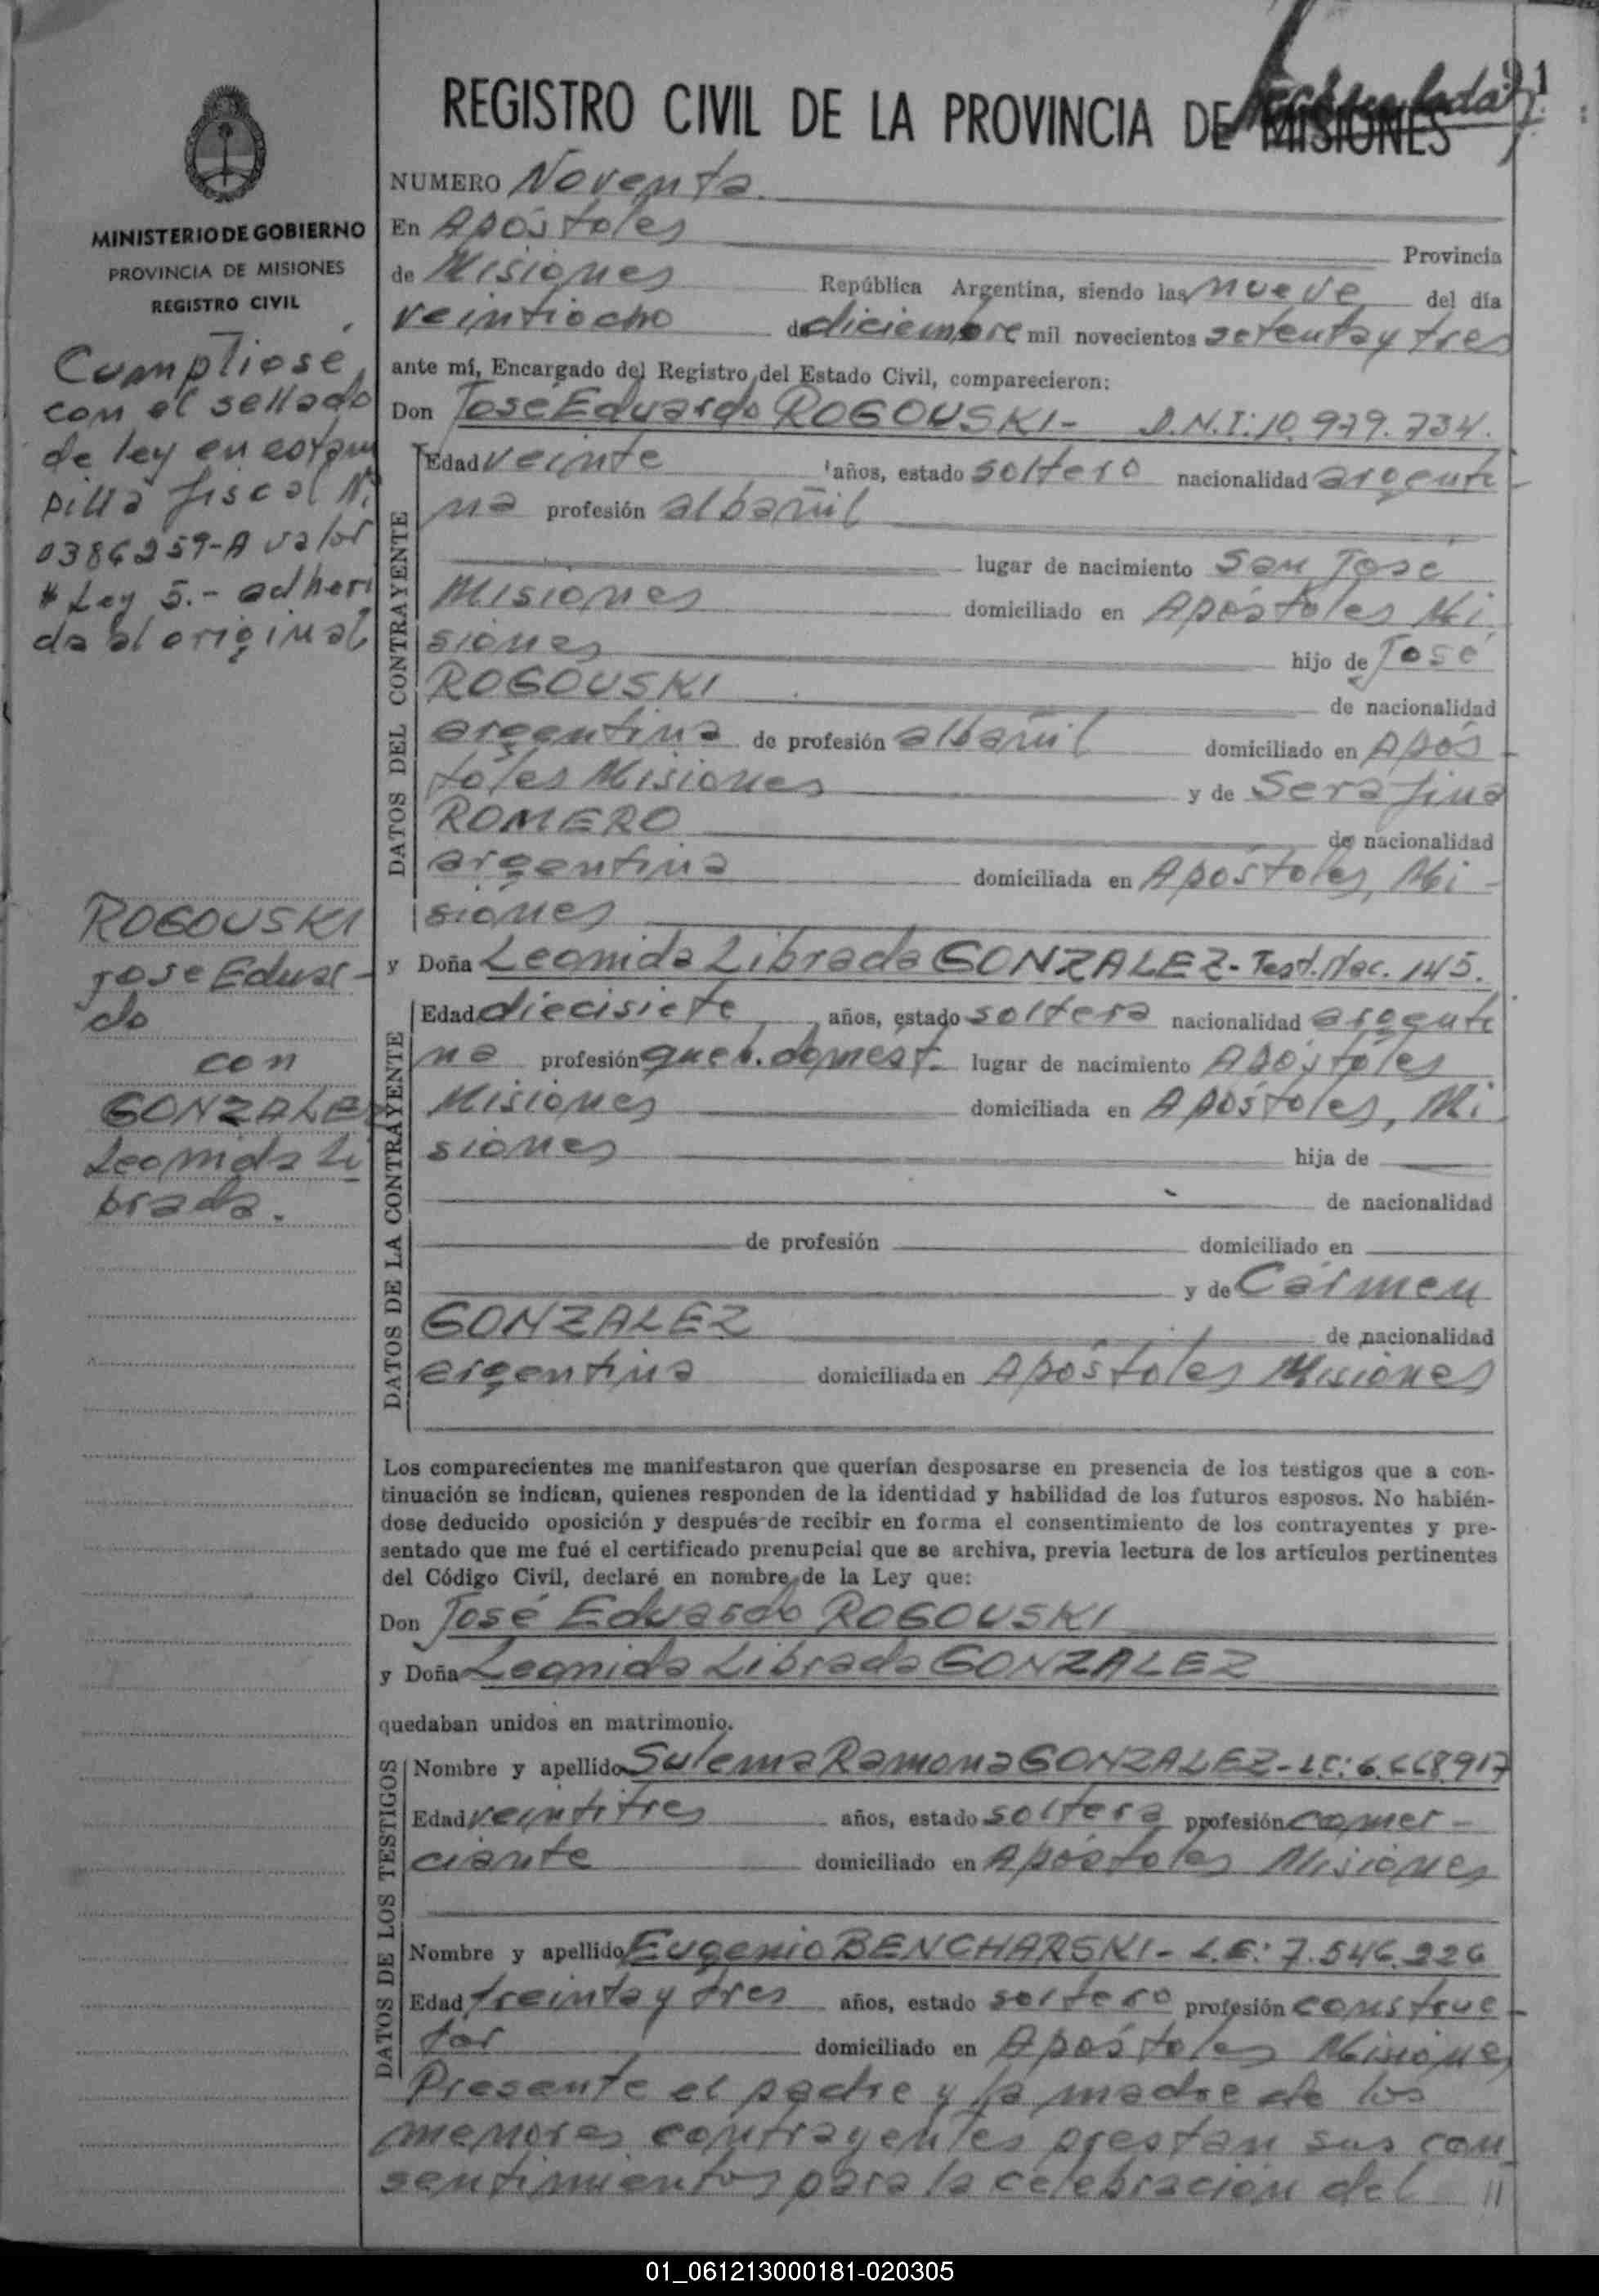 91
REGISTRO CIVIL DE LA PROVINCIA DE MISIONES
MINISTERIO DE GOBIERNO
PROVINCIA DE MISIONES
REGISTRO CIVIL
Cumpliose
con el sellado
de ley en estam
pilla fiscal N.
0386259-A valor
Ley 5.- adheri
da al original
ROGOUSKI
Jose Eduar-
do
con
GONZALEZ
Leonida Li
brada.
NUMERO Noventa
En Apóstoles Provincia
de Misiones República Argentina, siendo las nueve del día
veintiocho de diciembre mil novecientos setenta y tres
ante mí, Encargado del Registro del Estado Civil, comparecieron:
Don José Eduardo ROGOUSKI- D.N.I: 10.979.734.
DATOS DEL CONTRAYENTE
Edad veinte años, estado soltero nacionalidad argenti
na profesión albañil
lugar de nacimiento San José
Misiones domiciliado en Apóstoles Mi
siones hijo de José
ROGOUSKI de nacionalidad
argentina de profesión albañil domiciliado en Após
toles Misiones y de Serafina
ROMERO de nacionalidad
argentina domiciliada en Apóstoles, Mi-
siones
y Doña Leonida Librada GONZALEZ- Test. Nac. 145.
DATOS DE LA CONTRAYENTE
Edad diecisiete años, estado soltera nacionalidad argenti
na profesión queh. domest. lugar de nacimiento Apóstoles
Misiones domiciliada en Apóstoles, Mi
siones hija de
de nacionalidad
de profesión domiciliado en
y de Carmen
GONZALEZ de nacionalidad
argentina domiciliada en Apóstoles Misiones
Los comparecientes me manifestaron que querían desposarse en presencia de los testigos que a con-
tinuación se indican, quienes responden de la identidad y habilidad de los futuros esposos. No habién-
dose deducido oposición y después de recibir en forma el consentimiento de los contrayentes y pre-
sentado que me fué el certificado prenupcial que se archiva, previa lectura de los artículos pertinentes
del Código Civil, declaré en nombre de la Ley que:
Don José Eduardo ROGOUSKI
y Doña Leonida Librada GONZALEZ
quedaban unidos en matrimonio.
DATOS DE LOS TESTIGOS
Nombre y apellido Sulema Ramona GONZALEZ- L.C: 6.668.917
Edad veintitres años, estado soltera profesión comer-
ciante domiciliado en Apóstoles Misiones
Nombre y apellido Eugenio BENCHARSKI- L.E: 7.546.226
Edad treinta y tres años, estado soltero profesión construc-
tor domiciliado en Apóstoles Misiones
Presente el padre y la madre de los
menores contrayentes prestan sus con
sentimientos para la celebración del //
01_061213000181-020305